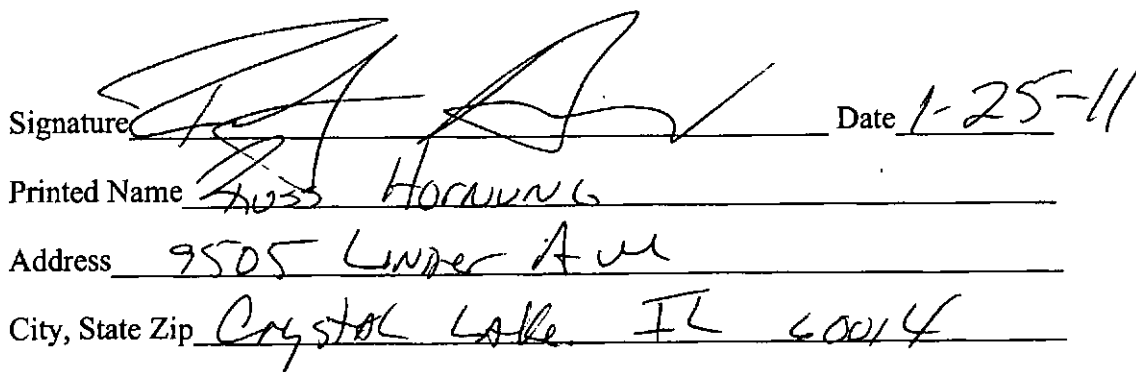 Signature Date 1-25-11
Printed Name Russ Hornung
Address 9505 Linder Ave
City, State Zip Crystal Lake IL 60014